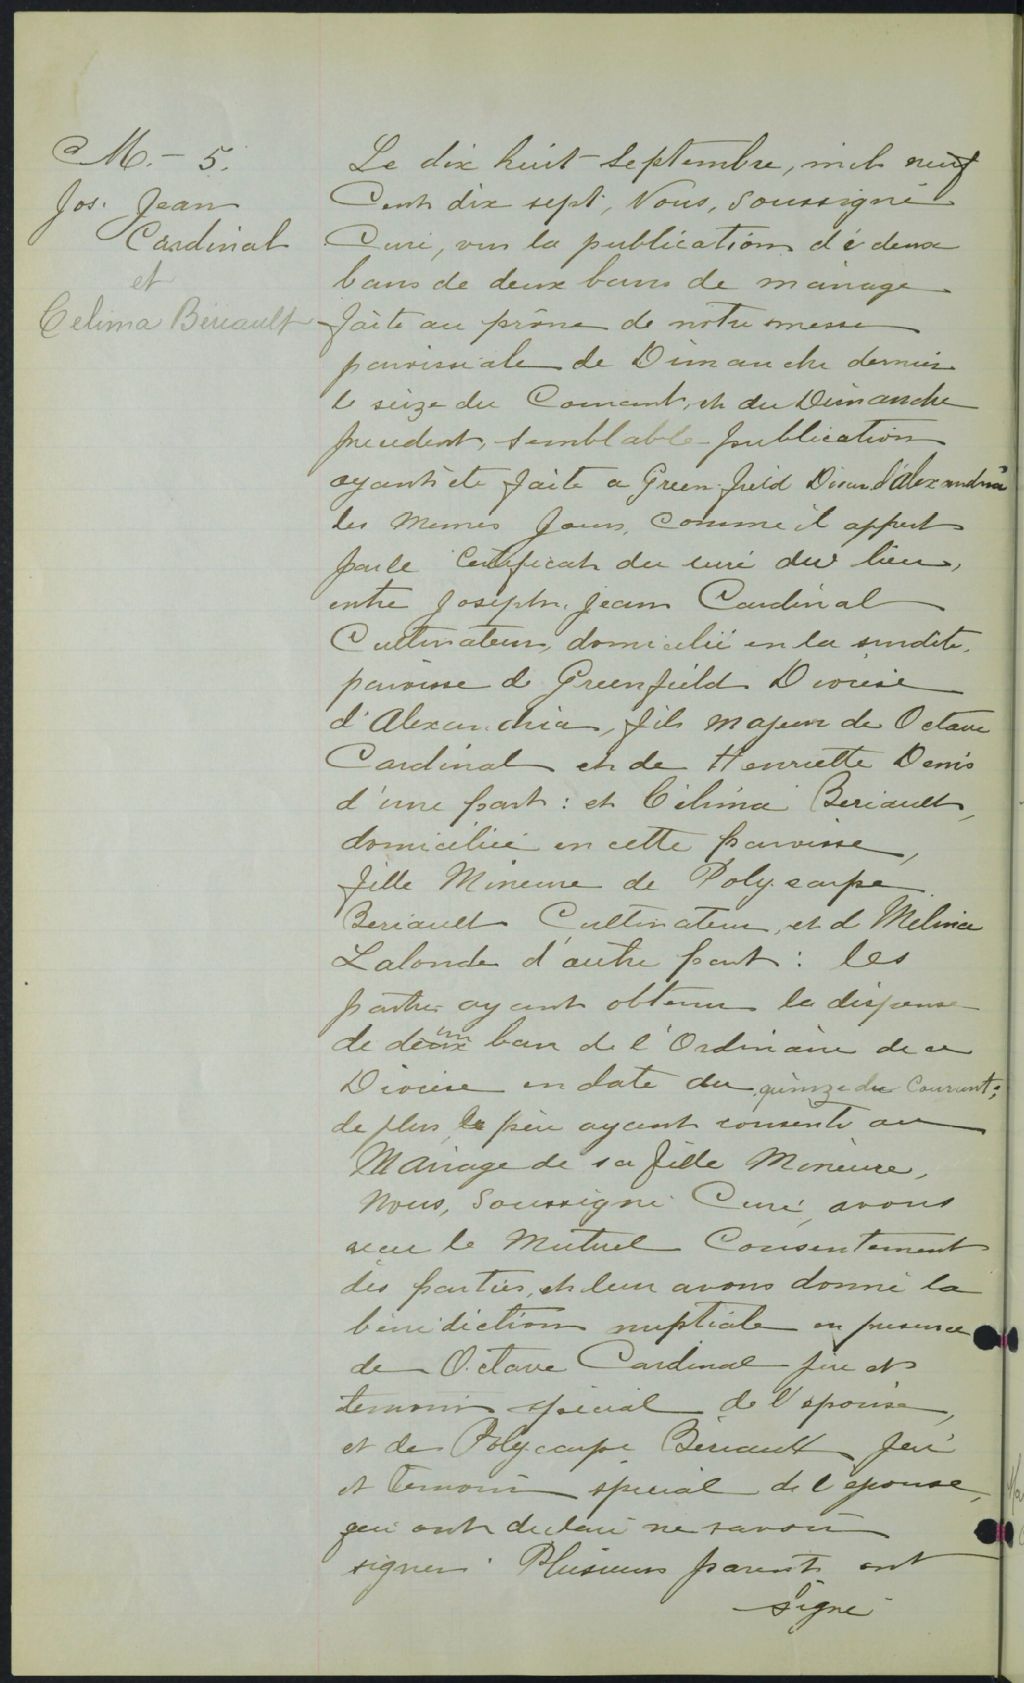 M. - 5.
Jos. Jean
Cardinal
et
Celima Beriault
Le dix huit Septembre, mil neuf
Cent dix sept, Nous, Soussigné
Curé, vu la publication dé deux
bans de deux bans de mariage
faite au prône de notre messe
paroissiale de Dimanche dernier
le seize du Courant, et du Dimanche
précédent, semblable publication
ayant été faite a Greenfield Diocèse d'Alexandria
les mêmes Jours, comme il appert
par le Certificat du curé du lieu,
entre Joseph Jean Cardinal
Cultivateur, domicilié en la susdite
paroisse de Greenfield Diocèse
d'Alexandria, fils majeur de Octave
Cardinal et de Henriette Denis
d'une part : et Célima Beriault,
domiciliée en cette paroisse,
fille Mineure de Polycarpe
Beriault Cultivateur, et d Mélina
Lalonde d'autre part : les
parties ayant obtenu la dispense
de deux un ban de l'Ordinaire de ce
Diocèse en date du quinze du Courant ;
de plus, le père ayant consenti au
Mariage de sa fille Mineure,
Nous, Soussigné Curé, avons
recu le Mutuel Consentement
des parties, et leur avons donné la
bénédiction nuptiale en présence
de Octave Cardinal père et
temoin spécial de l'épousé,
et de Polycarpe Bériault père
et temoin spécial de l'épouse,
qui ont déclaré ne savoir
signer. Plusieurs parents ont
signé